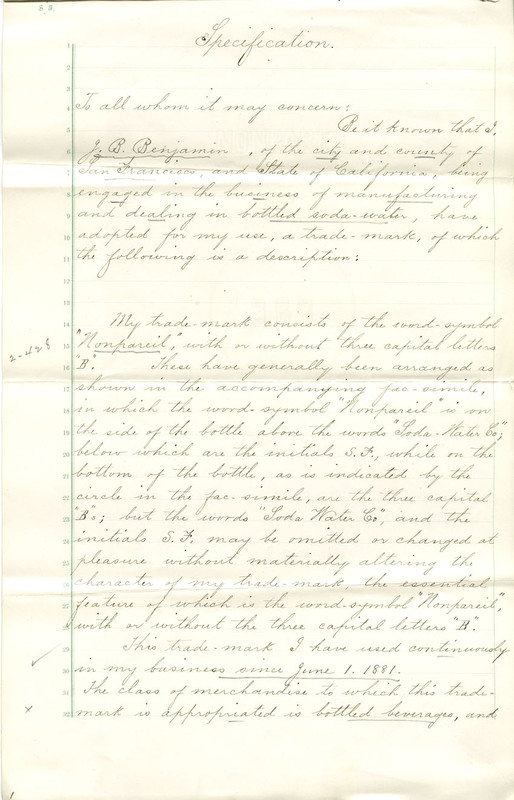 Specification.
To all whom it may concern:
Be it known that I,
J. B. Benjamin, of the city and county of
San Francisco, and State of California, being
engaged in the business of manufacturing
and dealing in bottled soda-water, have
adopted for my use, a trade-mark, of which
the following is a description:
My trade-mark consists of the word-symbol
"Nonpareil", with or without three capital letters
"B". These have generally been arranged as
shown in the accompanying fac-simile,
in which the word-symbol "Nonpareil" is on
the side of the bottle above the words "Soda-Water Co";
below which are the initials S.F., while on the
bottom of the bottle, as is indicated by the
circle in the fac-simile, are the three capital
"B"s; but the words "Soda Water Co", and the
initials S.F. may be omitted or changed at
pleasure without materially altering the
character of my trade-mark, the essential
feature of which is the word-symbol "Nonpareil",
with or without the three capital letters "B".
This trade-mark I have used continuously
in my business since June 1. 1881.
The class of merchandise to which this trade-
mark is appropriated is bottled beverages, and
2-428
1
2
3
4
5
6
7
8
9
10
11
12
13
14
15
16
17
18
19
20
21
22
23
24
25
26
27
28
29
30
31
32